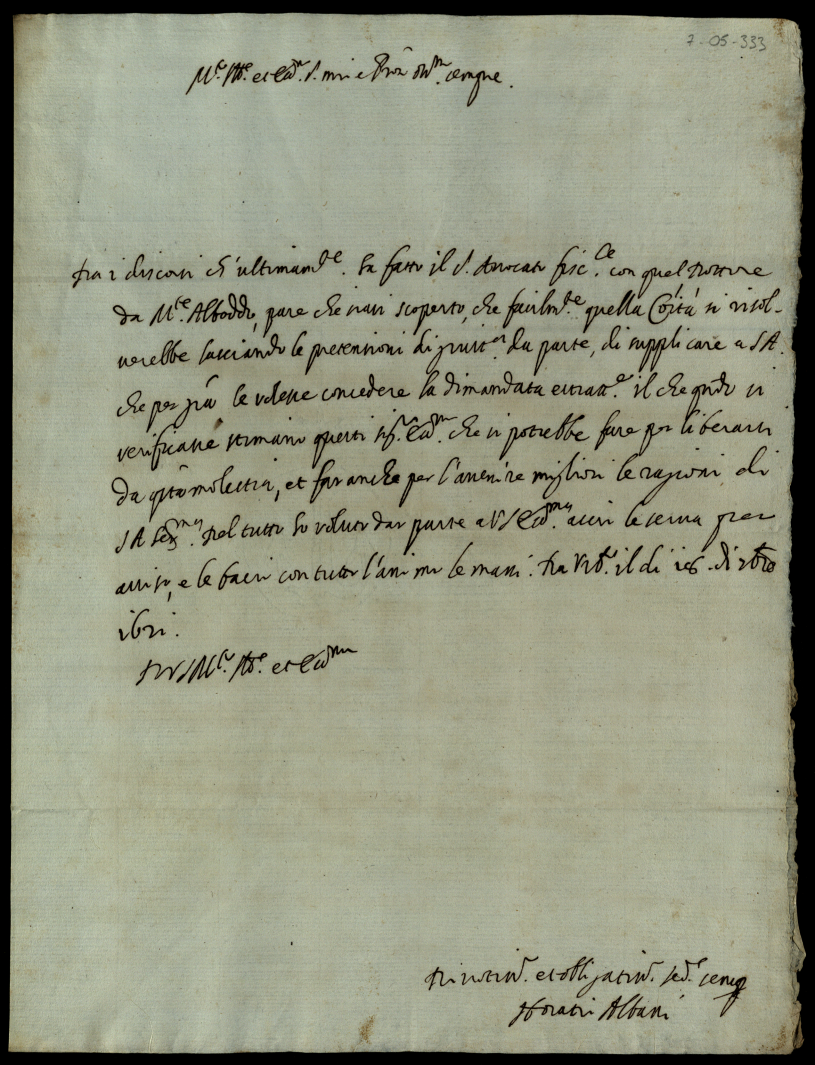 7-05-333
M.to Ill.re et Ecc.mo S. mio e P.ron oss.mo sempre.
Tra i discorsi ch'ultimam.te ha fatto il S. Avvocato fisc.le con quel Dottore
da M.te Alboddo, pare che habbi scoperto, che facilm.te quella Co͞ità si risol-
verebbe lasciando le pretensioni di da parte, di supplicare a S A.
che per gr͞a le volesse concedere la dimandata estratt.e il che q͞ndo si
verificasse stimano questi sig.ri Ecc.mi che si potrebbe fare per liberarsi
da q͞sta molestia, et far anche per l'avenire migliori le ragioni di
S A Ser.ma. Del tutto ho voluto dar parte a V S Ecc.ma acciò le serva per
aviso, e le bacio con tutto l'animo le mani. Da Urb.o il di 26. di 8bre
1621.
Di V S M.to Ill.re et Ecc.ma
Divotiss.o et obligatiss.o se.re sempre
Horatio Albani